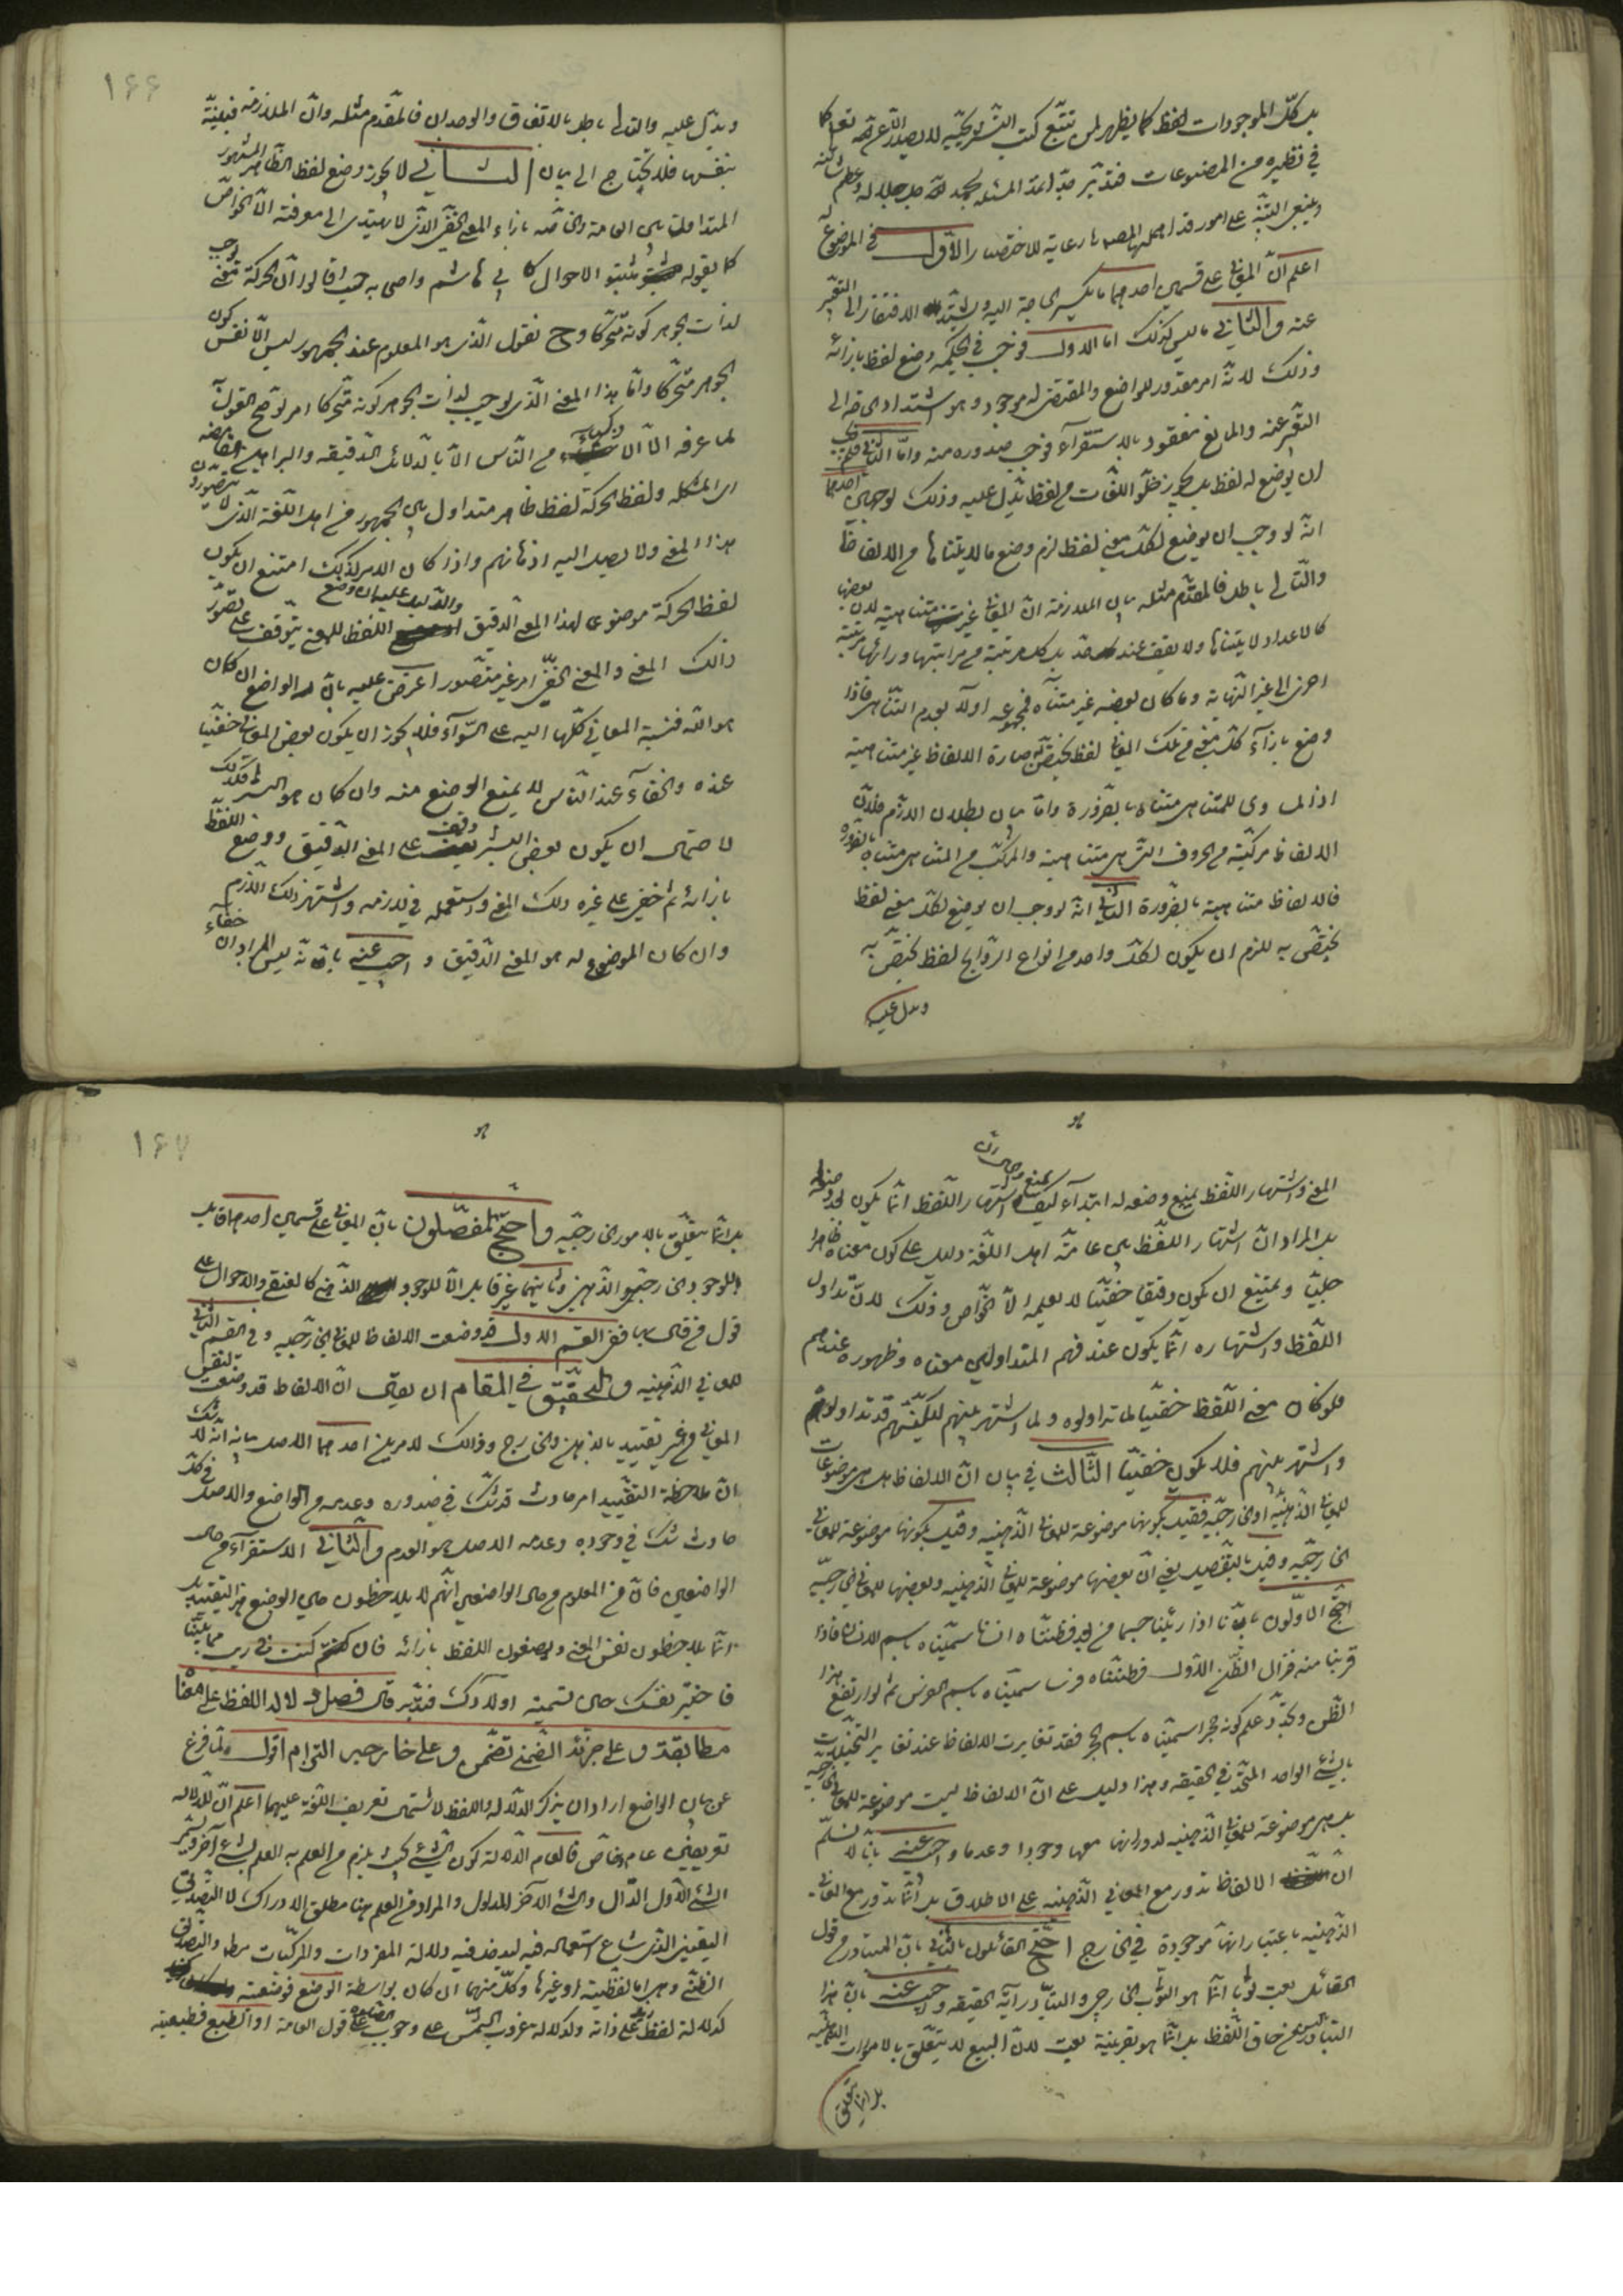 بل كلّ الموجودات لفظ كما يظهر لمن تتبّع كتب
في نظيره من المصنوعات فتدبّر جدّا
وينبغي التنبّه على امور قد اهملها المصـ هنا رعاية للاختصار الأوّل في الموضوع له
اعلم انّ المعاني على قسمين احدهما ما يكثر الحاجة اليه ويشتدّ الافتقار الى التعبّير
عنه والثاني ما ليس كذلك اما الاول فوجب في الحكمة وضع لفظ بازائه
وذلك لانّه امر مقدور للواضع والمقتضى له موجود وهو اشتداد الحاجة الى
التعبّير عنه والمانع مفقود بالاستقرآء فوجب صدوره منه وامّا الثاني فلم يجب
ان يوضع له لفظ بل يجوز خلّو اللّغات من لفظ يدّل عليه وذلك لوجهين احدهما
انّه لو وجب ان يوضع لكلّ معنى لفظ لزم وضع ما لا يتناها من الالفاظ
والتّالى باطل فالمقدّم مثله بيان الملازمة انّ المعاني غير متناهية لانّ بعضها
كالاعداد لا يتناها ولا يقف عند حدّ بل كل مرتبة من مراتبها ورائها مرتبة
اخرى الى غير النّهاية وما كان بعضه غير متناه فمجموعه اولا بعدم التناهى فاذا
وضع بازآء كلّ معنى من تلك المعاني لفظ يختصّ به صارة الالفاظ غير متناهية
اذ المساوى للمتناهى متناه بالضّرورة وامّا بيان بطلان اللازم فلانّ
الالفاظ مركّبة من الحروف الّتى هى متناهية والمركّب من المتناهى متناه بالضرورة
فالالفاظ متناهية بالضرورة الثاني انّه لو وجب ان يوضع لكلّ معنى لفظ
يختصّ به للزم ان يكون لكلّ واحد من انواع الرّوايح لفظ يختصّ به
ويدل عليه
١٦٦
ويدّل عليه والتالى باطل بالاتفاق والوجدان فالمقدّم مثله وانّ الملازمة فبيّنة
بنفسها فلا يحتاج الى بيان الثاني لا يجوز وضع لفظ الظّاهر المشهور
المتداول بين العامة والخاصّه بازاء المعنى الخفىّ الّذى لا يهتدى الى معرفته الّا الخواصّ
كما يقوله مثبتو الاحوال كابي هاشم واصحابه حيث قالوا انّ الحركة معنى يوجب
لذات الجوهر كونه متحّركا وح نقول الّذى هو المعلوم عند الجمهور ليس الّا نفس كون
الجوهر متحّركا وامّا هذا المعنى الّذى يوجب لذات الجوهر كونه متحّركا امر لو صّح القول به
لما عرفه الّا الاذكياء من النّاس الّا بالدلائل الدّقيقه والبراهين الغامضه
المشكله ولفظ الحركة لفظ ظاهر متداول بين الجمهور من اهل اللّغة الّذى لا يتصّورون
هذا المعنى ولا يصل اليه اذهانهم واذا كان الامر كذلك امتنع ان يكون
لفظ الحركة موضوعى لهذا المعنى الدّقيق والدليل عليه ان وضع اللفظ للمعنى يتّوقف على تصّور
ذالك المعنى والمعنى الخفّى امر غير متصّور اعرض عليه بان الواضع ان كان
هو الله فنسبة المعاني كلّها اليه على السّوآء فلا يجوز ان يكون بعض المعاني خفيّا
عنده والخفآء عند النّاس لا يمنع الوضع منه وان كان هو البشر فكذلك
لاحتمال ان يكون بعض البشر وقف على المعنى الدّقيق ووضع اللفظ
بازائه ثم اخفى على غيره ذلك المعنى واستعمله في لازمه واشتهر ذلك اللازم
وان كان الموضوع له هو المعنى الدّقيق واجيب عنه بانّه ليس المراد ان خفاء
المعنى واشتهار اللفظ يمنع وضعه له ابتدآء كيف واشتهار اللّفظ انّما يكون بعد وضعه
بل المراد انّ اشتهار اللّفظ بين عامّة اهل اللّغة دليل على كون معناه ظاهرا
جليّا ويمتنع ان يكون دقيقا خفيّا لا يعلمه الّا الخّواص وذلك لانّ تداول
اللّفظ واشتهاره انّما يكون عند فهم المتداولين معناه وظهوره عندهم
فلو كان معنى اللّفظ خفيّا لما تداولوه ولما اشتهر بينهم لكنّهم قد تداولوه
واشتهر بينهم فلا يكون خفيّا الثّالث في بيان انّ الالفاظ هل هى موضوعات
للمعاني الذّهنيّه او الخارجيّه فقيل بكونها موضوعة للمعاني الذّهنيه وقيل بكونها موضوعة للمعاني
الخارجيّه وقيل بالتّفصيل يعنى انّ بعضها موضوعة للمعاني الذّهنيه وبعضها للمعاني الخارجيّه
احتّج الاوّلون بانّا اذا رئينا جسما من بعيد فظنّناه انسانا سمّيناه باسم الانسان فاذا
قربنا منه فزال الظّن الاوّل فظنّناه فرسا سمّيناه باسم الفرس ثم لو ارتفع هذا
الظّن وتجدّد علم كونه حجرا سمّيناه باسم الحجر فقد تغايرت الالفاظ عند تغاير التخيّلات
بالشّئ الواحد المتّحد في الحقيقه وهذا دليل على انّ الالفاظ ليست موضوعة للمعاني الخارجيّه
بل هى موضوعة للمعاني الذّهنيه لدورانها معها وجودا وعدما واجيب عنه بانّا لا نسلّم
ان الالفاظ تدور مع المعاني الذّهنيه على الاطلاق بل انّما تدور مع المعاني
الذّهنيه باعتبار انّها موجودة في الخارج احتّج القائلون بالثّاني بانّ المتبادر من قول
القائل بعت ثوبا انّما هو الثّوب الخارجى والتبّادر آية الحقيقه واجيب عنه بانّ هذا
التبّادر ليس من حاق اللّفظ بل انّما هو بقرينة بعت لانّ البيع لا يتعّلق بالاموات الذّهنيّه
بل انما يتعلق
١٦٧
بل انّما يتعّلق بالامور الخارجيّه واحتّج المفصّلون بانّ المعاني على قسمين احدهما قابل
للوجود الخارجىّ والذّهنى وثانيهما غير قابل الّا للوجود الذّهنى كالعنقى والاحوال على
قول من قال بها ففى القسم الاول قد وضعت الالفاظ للمعاني الخارجيه وفى القسم الثاني
للمعاني الذّهنيه والتحقيق في المقام ان يقال انّ الالفاظ قد وضعت لنفس
المعاني من غير تقييد بالذّهن والخارج وذالك لامرين احدهما الاصل بيانه انّه لا شك
انّ ملاحظة التقييد امر حادث قد شكّ في صدوره وعدمه من الواضع والاصل في كلّ
حادث شكّ في وجوده وعدمه الاصل هو العدم والثّاني الاستقرآء من حال
الواضعين فانّ من المعلوم من حال الواضعين انّهم لا يلاحظون حين الوضع هذا التقييد بل
انّما يلاحظون نفس المعنى ويضعون اللفظ بازائه فان كنت في ريب ممّا بيّنا
فاختبر نفسك حال تسمية اولادك فتدّبر قال فصل دلالة اللفظ على معناه
مطابقة وعلى جزئه الضّمنى تضّمن وعلى خارجه التزام اقول لمّا فرغ
عن بيان الواضع اراد ان يذكر الدّلالة واللفظ لاشتمال تعريف اللّغة عليهما اعلم انّ للدّلاله
تعريفين عام وخاصّ فالعام الدّلالة كون الشّئ بحيث يلزم من العلم به العلم بشئ آخر ويسمّى
الشّئ الاوّل الدّال والشّئ الآخر المدلول والمراد من العلم هنا مطلق الادراك لا التّصديق
اليقينىّ الّذى شاع استعماله فيه ليدخل فيه دلالة المفردات والمركّبات مطلقا والتّصديق
الظنّى وهى اما لفظية او غيرها وكلّ منهما ان كان بواسطة الوضع فوضعيّة
كدلالة لفظ زيد على ذاته وكدلالة غروب الشّمس على وجوب الصلوة على قول العامة او الطّبع فطبيعيّة